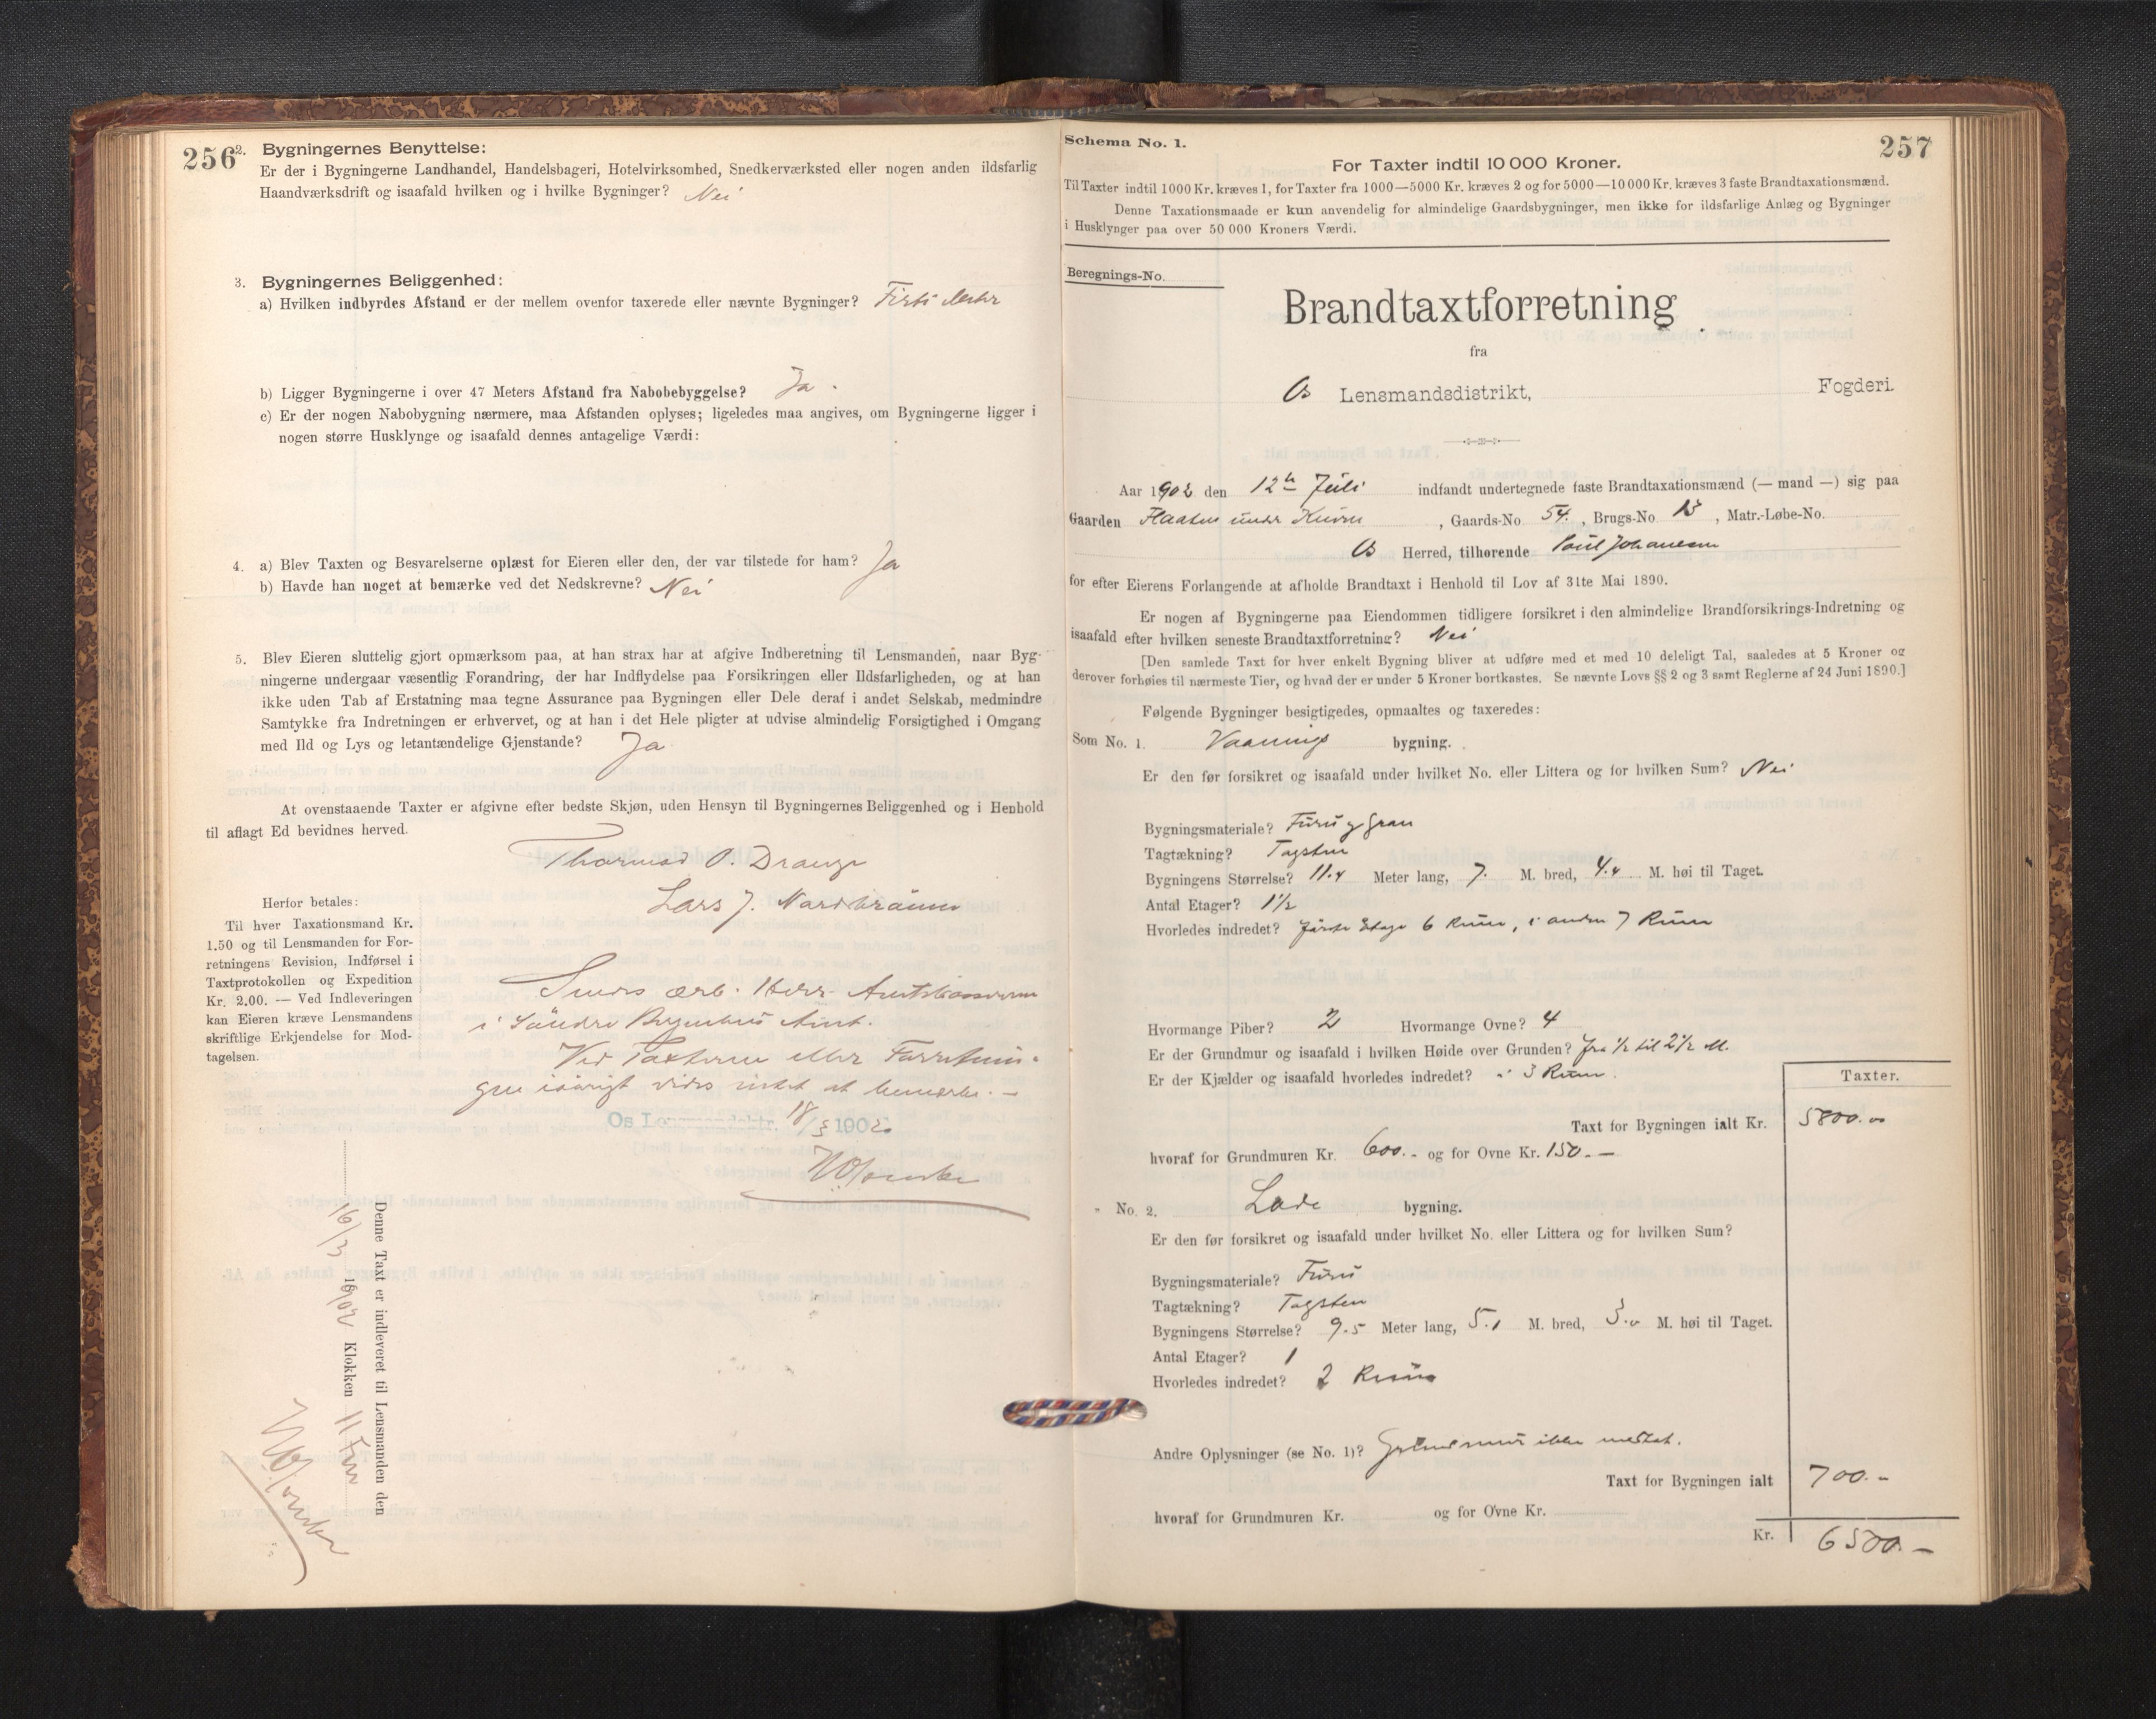 256
2. Bygningernes Benyttelse:
Er der i Bygningerne Landhandel, Handelsbageri, Hotelvirksomhed, Snedkerværksted eller nogen anden ildsfarlig
Haandværksdrift og isaafald hvilken og i hvilke Bygninger? Nei
3. Bygningernes Beliggenhed:
a) Hvilken indbyrdes Afstand er der mellem ovenfor taxerede eller nævnte Bygninger?
b) Ligger Bygningerne i over 47 Meters Afstand fra Nabobebyggelse? Ja.
c) Er der nogen Nabobygning nærmere, maa Afstanden oplyses; ligeledes maa angives, om Bygningerne ligger i
nogen større Husklynge og isaafald dennes antagelige Værdi:
4. a) Blev Taxten og Besvarelserne oplæst for Eieren eller den, der var tilstede for ham? Ja
b) Havde han noget at bemærke ved det Nedskrevne? Nei
5. Blev Eieren sluttelig gjort opmærksom paa, at han strax har at afgive Indberetning til Lensmanden, naar Byg-
ningerne undergaar væsentlig Forandring, der har Indflydelse paa Forsikringen eller Ildsfarligheden, og at han
ikke uden Tab af Erstatning maa tegne Assurance paa Bygningen eller Dele deraf i andet Selskab, medmindre
Samtykke fra Indretningen er erhvervet, og at han i det Hele pligter at udvise almindelig Forsigtighed i Omgang
med Ild og Lys og letantændelige Gjenstande? Ja
At ovenstaaende Taxter er afgivne efter bedste Skjøn, uden Hensyn til Bygningernes Beliggenhed og i Henhold
til aflagt Ed bevidnes herved.
O. Drange
Lars J.
Herfor betales:
Til hver Taxationsmand Kr.
1.50 og til Lensmanden for For-
retningens Revision, Indførsel i
Taxtprotokollen og Expedition
Kr. 2.00. — Ved Indleveringen
kan Eieren kræve Lensmandens
skriftlige Erkjendelse for Mod-
tagelsen.
Sendes ærb. Herr
i Søndre Bergenhus Amt.
Ved Taxterne eller Forretnin-
gen iøvrigt vides intet at bemærke. —
Os Lensmandsktr. 18/3 1902
Denne Taxt er indleveret til Lensmanden den
16/3 1902 Klokken 11 Fm
257
Schema No. 1.
For Taxter indtil 10 000 Kroner.
Til Taxter indtil 1000 Kr. kræves 1, for Taxter fra 1000—5000 Kr. kræves 2 og for 5000—10 000 Kr. kræves 3 faste Brandtaxationsmænd.
Denne Taxationsmaade er kun anvendelig for almindelige Gaardsbygninger, men ikke for ildsfarlige Anlæg og Bygninger
i Husklynger paa over 50 000 Kroners Værdi.
Beregnings-No.
Brandtaxtforretning
fra
Os Lensmandsdistrikt, Fogderi.
Aar 1902 den 12te Juli indfandt undertegnede faste Brandtaxationsmænd (— mand —) sig paa
Gaarden under, Gaards-No. 54., Brugs-No. 13, Matr.-Løbe-No.
Os Herred, tilhørende Johannesen
for efter Eierens Forlangende at afholde Brandtaxt i Henhold til Lov af 31te Mai 1890.
Er nogen af Bygningerne paa Eiendommen tidligere forsikret i den almindelige Brandforsikrings-Indretning og
isaafald efter hvilken seneste Brandtaxtforretning? Nei
[Den samlede Taxt for hver enkelt Bygning bliver at udføre med et med 10 deleligt Tal, saaledes at 5 Kroner og
derover forhøies til nærmeste Tier, og hvad der er under 5 Kroner bortkastes. Se nævnte Lovs §§ 2 og 3 samt Reglerne af 24 Juni 1890.]
Følgende Bygninger besigtigedes, opmaaltes og taxeredes:
Som No. 1. Vaanings bygning.
Er den før forsikret og isaafald under hvilket No. eller Littera og for hvilken Sum? Nei
Bygningsmateriale? Furu og Gran
Tagtækning? Tagsten
Bygningens Størrelse? 11.4 Meter lang, 7. M. bred, 4.4 M. høi til Taget.
Antal Etager? 1½
Hvorledes indredet? første Etage 6 Rum, i anden 7 Rum
Hvormange Piber? 2 Hvormange Ovne? 4
Er der Grundmur og isaafald i hvilken Høide over Grunden? fra ½ til 2½ M.
Er der Kjælder og isaafald hvorledes indredet? i 3 Rum.
Taxter.
Taxt for Bygningen ialt Kr. 5800.00
hvoraf for Grundmuren Kr. 600.- og for Ovne Kr. 150.-
" No. 2. Lade bygning.
Er den før forsikret og isaafald under hvilket No. eller Littera og for hvilken Sum?
Bygningsmateriale? Furu
Tagtækning? Tagsten
Bygningens Størrelse? 9.5 Meter lang, 5.1 M. bred, 3.0 M. høi til Taget.
Antal Etager? 1
Hvorledes indredet? 2 Rum
Andre Oplysninger (se No. 1)? Grundmur ikke
Taxt for Bygningen ialt 700.-
hvoraf for Grundmuren Kr. og for Ovne Kr.
Kr. 6500.-